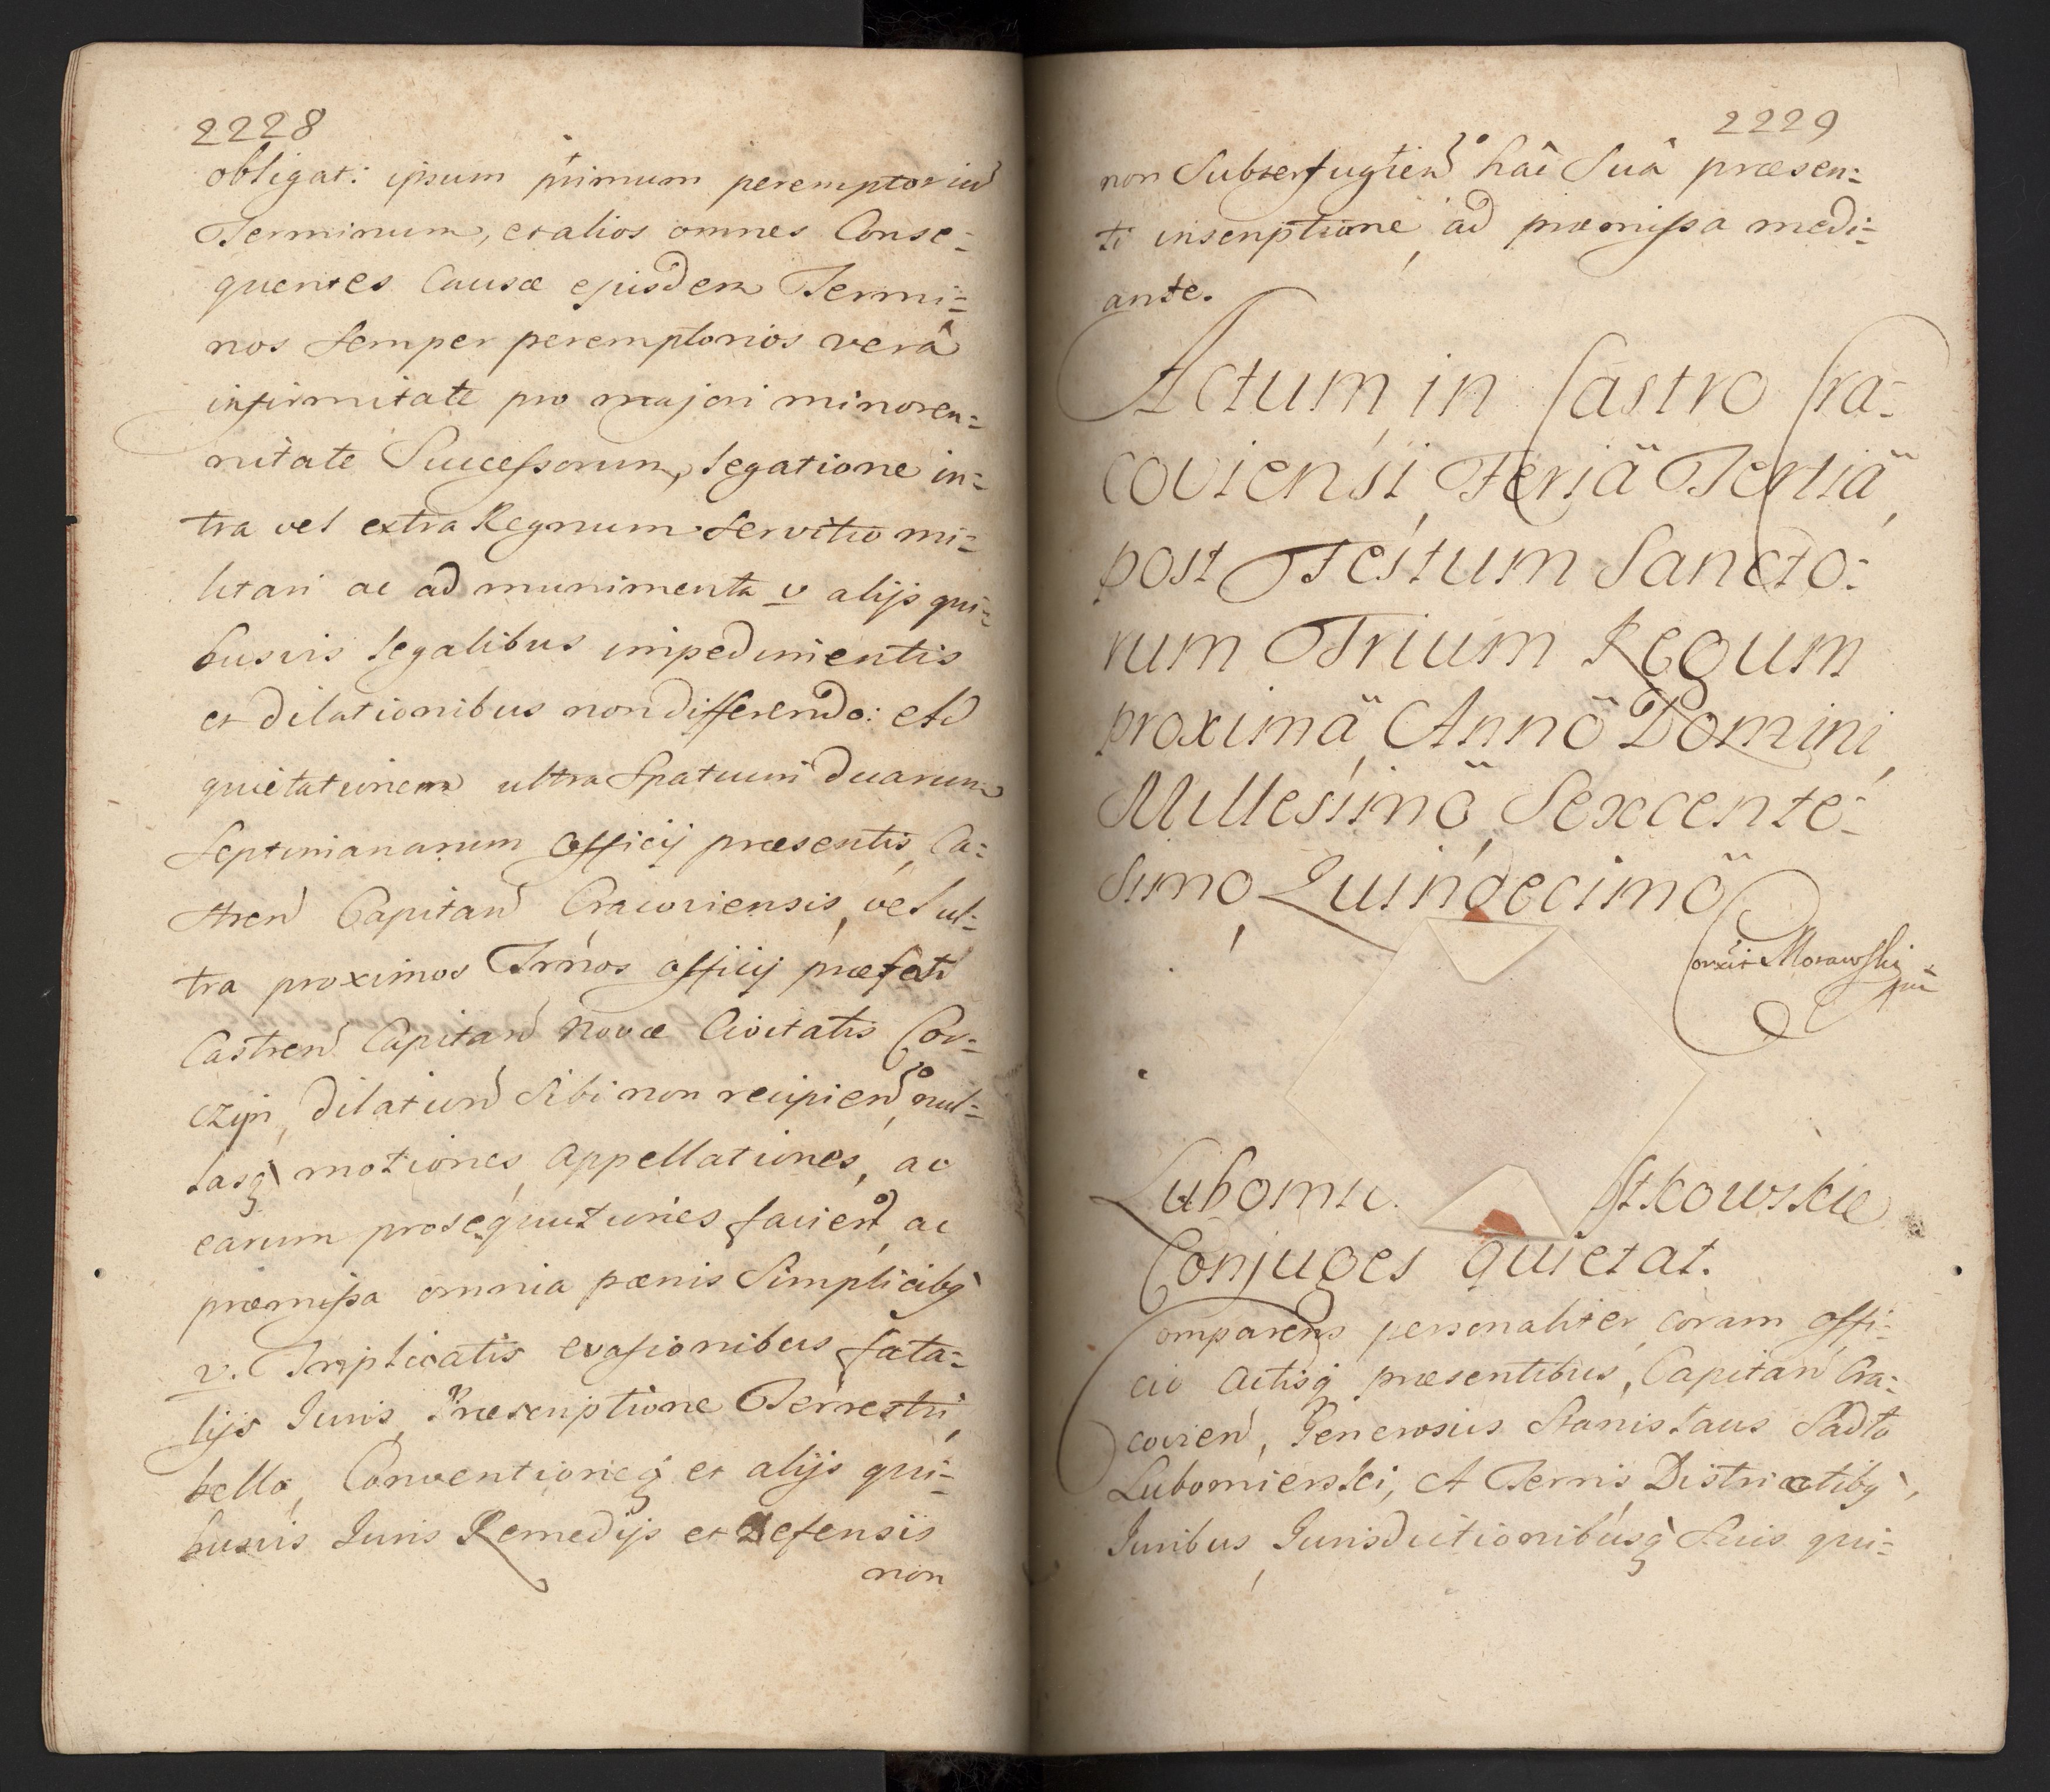 2228
obligat: ipsum primum peremptoriũ
Terminum, et alios omnes Conse=
quentes Causæ ejusdem Termi=
nos semper peremptorios verâ
infirmitate pro majori minoren=
nitate Successorum, legatione in=
tra vel extra Regnum servitio mi=
litari ac ad munimenta v alijs qui=
busvis legalibus impedimentis
et dilationibus non differendo: Ad
quietationem ultra Spatium duarum
Septimanarum officij præsentis, Ca=
stren Capitan Cracoviensis, vel ul=
tra proximos Trmos officij præfati
Castren Capitan Novæ Civitatis Cor=
czyn, dilation sibi non recipiendo, nul=
lasq motiones, appellationes, ac
earum prosequutiones faciendo, ac
præmissa omnia pænis Simplicibq
v. Triplicatis evasionibus fata=
lijs Juris, Præscriptione Terrestri,
bello, Conventioneq et alijs qui=
busvis Juris Remedijs et Defensis
non
2229
non Subterfugiendo hac Suâ præsen=
ti inscriptione, ad præmissa medi=
ante.
Actum in Castro Cra=
coviensi, Feriâ Tertiâ,
post Festum Sancto=
rum Trium Regum
proximâ, Annô Domini
Millesimô, Sexcente=
simo, Quindecimô
Correxit Morawski
mp
Lubomir. stkowskie
Conjuges quietat.
Comparens personaliter coram offi=
cio Actisq præsentibus, Capitan Cra=
covien, Generosus Stanislaus Sadło
Lubomierski, A Terris Districtibq,
Juribus, Jurisdictionibusq Suis qui=